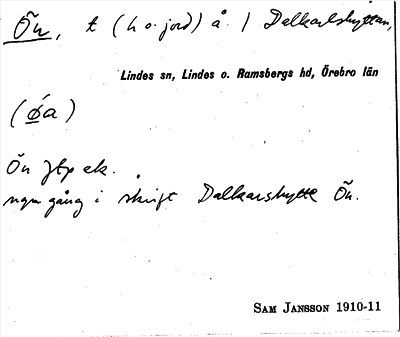 Ön, t (h o. jord) å. / Dalkarlshyttan,
Lindes sn, Lindes o. Ramsbergs hd, Örebro län
(øa)
Ön Jtp ek.
ngn gång i skrift Dalkarshytte Ön.
SAM JANSSON 1910-11